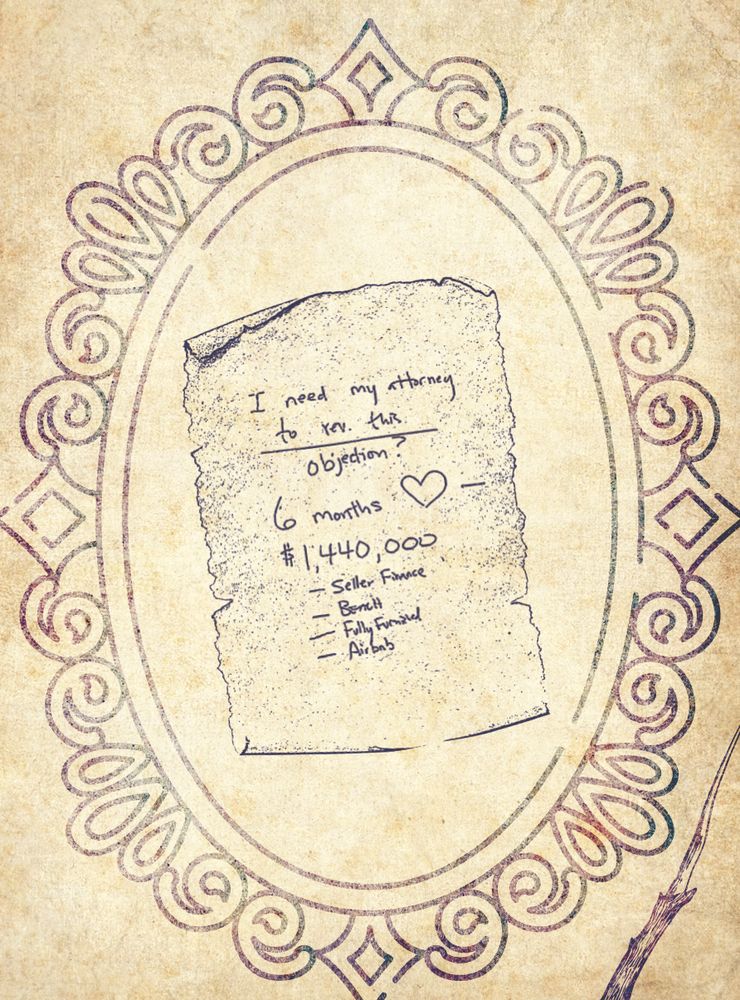 I need my attorney
to rev. this
Objection?
6 months
$1,440,000
— Seller Finance
—
— Fully Furnished
— Airbnb